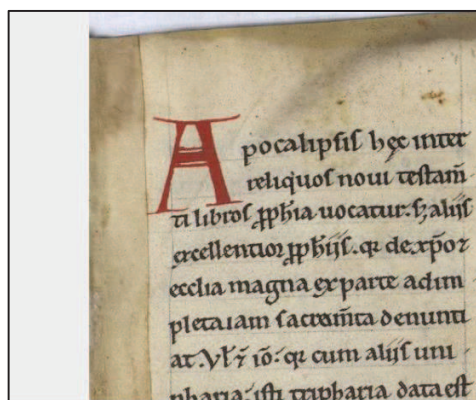 Apocalipsis hęc inter
reliquos noui testam̄
ti libros ꝓph̄ia uocatur. sꝫ alijs
excellentior ꝓph̄ijs. qꝛ de xp̄o ⁊
ecclia magna ex parte adim
pleta iam sacram̄ta denunti
at. Vl̄ ⁊ iō. qꝛ cum alijs uni
pharia. isti tripharia data est